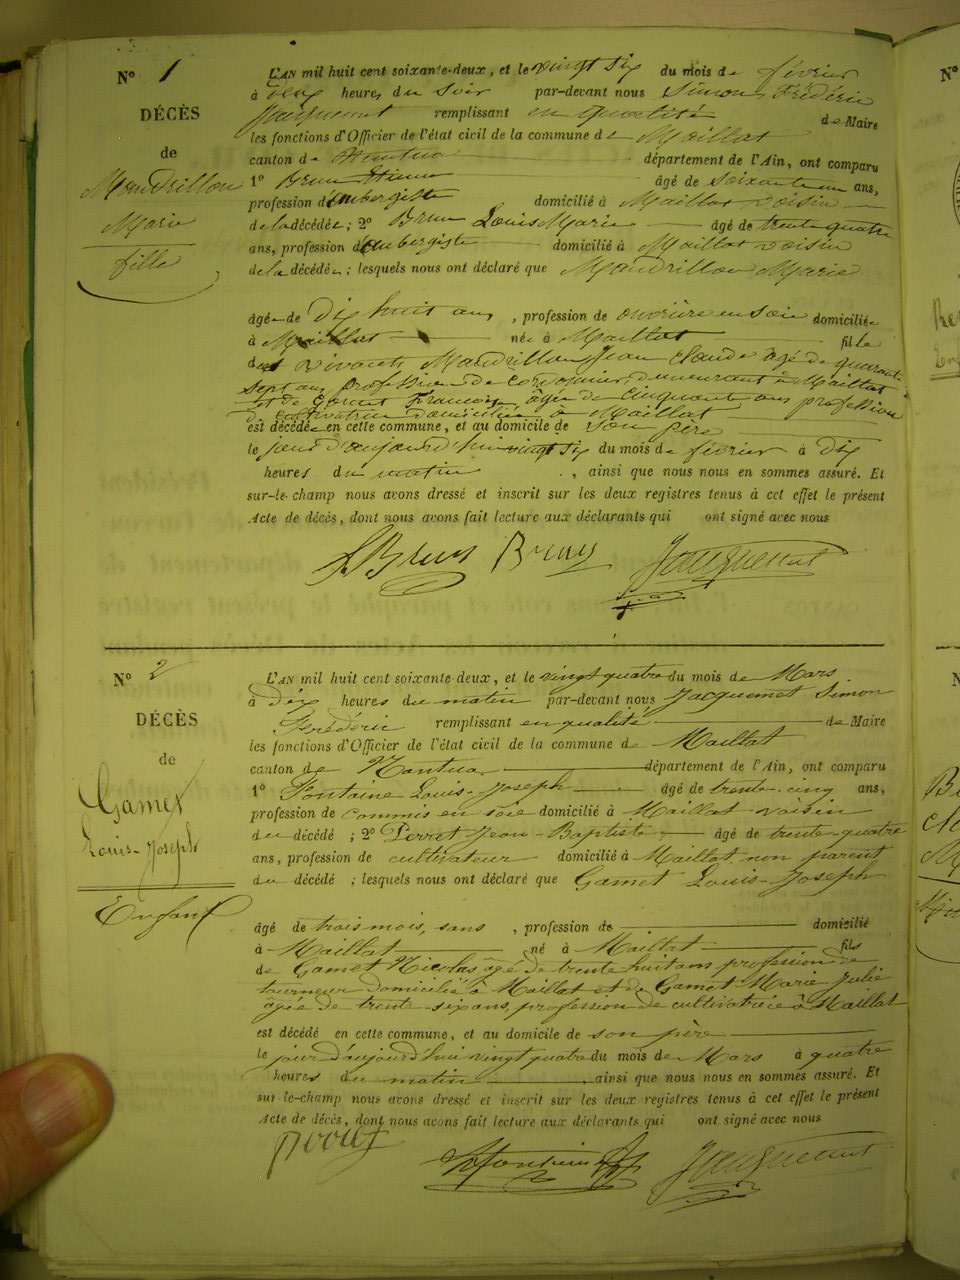 N° 1
DÉCÈS
de
Mandrillon
Marie
fille
L'AN mil huit cent soixante-deux, et le vingt six du mois de février
à deux heures du soir par-devant nous Simon Frédéric
Jacquemet remplissant en qualité de Maire
les fonctions d'Officier de l'état civil de la commune de Maillat
canton de Nantua département de l'Ain, ont comparu
1° Brun Etienne âgé de soixante un ans,
profession d'aubergiste domicilié à Maillat voisin
de la décédée ; 2° Brun Louis Marie âgé de trente quatre
ans, profession d'aubergiste domicilié à Maillat voisin
de la décédée ; lesquels nous ont déclaré que Mandrillon Marie
âgée de dix huit ans, profession de ouvrière en soie domiciliée
à Maillat née à Maillat fille
des vivants Mandrillon Jean Claude âgé de quarante
sept ans profession de cordonnier demeurant à Maillat
et de Gamet Françoise âgée de cinquante ans profession
de cultivatrice domiciliée à Maillat
est décédée en cette commune, et au domicile de son père
le jour d'aujourd'hui vingt six du mois de février à dix
heures du matin , ainsi que nous nous en sommes assuré. Et
sur-le-champ nous avons dressé et inscrit sur les deux registres tenus à cet effet le présent
Acte de décès, dont nous avons fait lecture aux déclarants qui ont signé avec nous
L Brun Brun Jacquemet
N° 2
DÉCÈS
de
Gamet
Louis-Joseph
Enfant
L'AN mil huit cent soixante-deux, et le vingt quatre du mois de Mars
à dix heures du matin par-devant nous Jacquemet Simon
Frédéric remplissant en qualité de Maire
les fonctions d'Officier de l'état civil de la commune de Maillat
canton de Nantua département de l'Ain, ont comparu
1° Fontaine Louis-Joseph âgé de trente-cinq ans,
profession de commis en soie domicilié à Maillat voisin
du décédé ; 2° Perret Jean-Baptiste âgé de trente-quatre
ans, profession de cultivateur domicilié à Maillat non parent
du décédé ; lesquels nous ont déclaré que Gamet Louis-Joseph
âgé de trois mois, sans , profession de domicilié
à Maillat né à Maillat fils
de Gamet Nicolas âgé de trente huit ans profession de
tourneur domicilié à Maillat et de Gamet Marie Julie
âgée de trente six ans, profession de cultivatrice à Maillat
est décédé en cette commune, et au domicile de son père
le jour d'aujourd'hui vingt quatre du mois de Mars à quatre
heures du matin , ainsi que nous nous en sommes assuré. Et
sur-le-champ nous avons dressé et inscrit sur les deux registres tenus à cet effet le présent
Acte de décès, dont nous avons fait lecture aux déclarants qui ont signé avec nous
Jacquemet